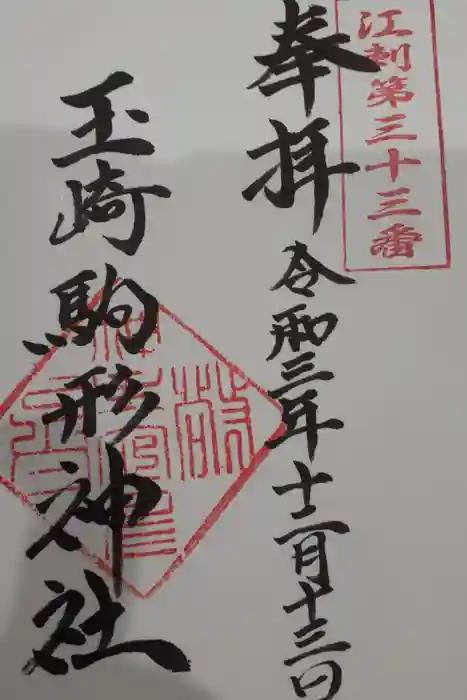 江刺第三十三番
奉拝 令和三年十二月十三日
玉崎駒形神社